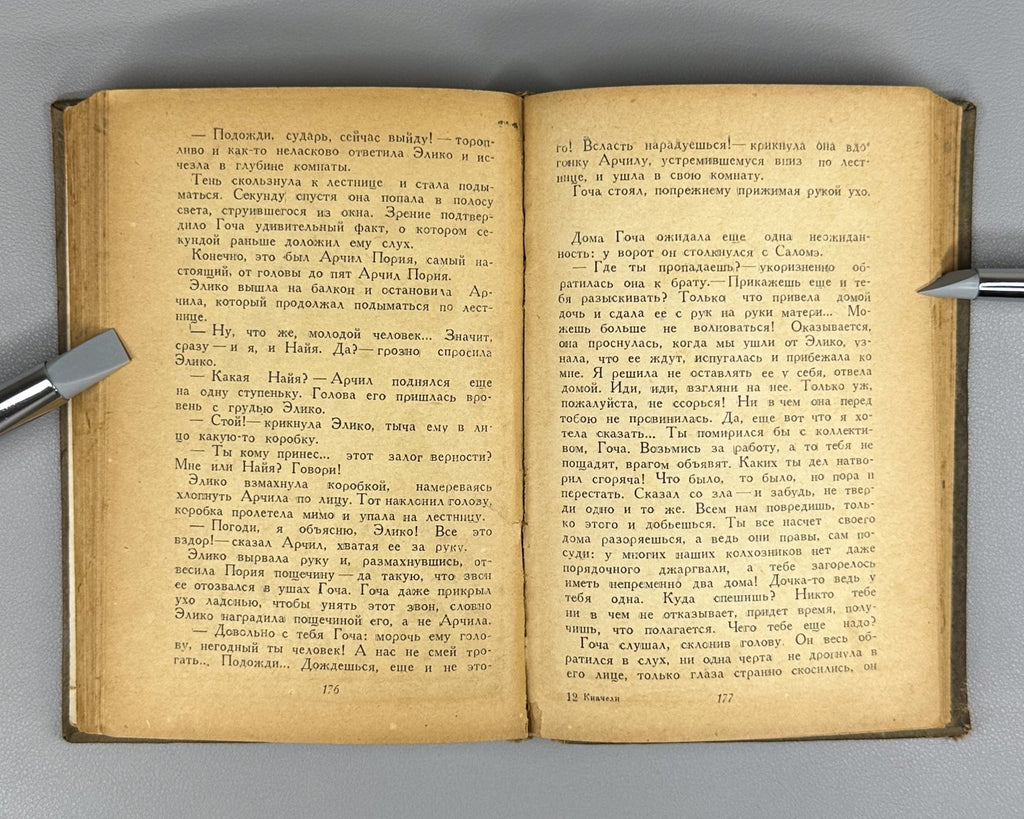 — Подожди, сударь, сейчас выйду! — тороп-
ливо и как-то неласково ответила Элико и ис-
чезла в глубине комнаты.
Тень скользнула к лестнице и стала поды-
маться. Секунду спустя она попала в полосу
света, струившегося из окна. Зрение подтвер-
дило Гоча удивительный факт, о котором се-
кундой раньше доложил ему слух.
Конечно, это был Арчил Пория, самый на-
стоящий, от головы до пят Арчил Пория.
Элико вышла на балкон и остановила Ар-
чила, который продолжал подыматься по лест-
нице.
— Ну, что же, молодой человек... Значит,
сразу — и я, и Найя. Да? — грозно спросила
Элико.
— Какая Найя? — Арчил поднялся еще
на одну ступеньку. Голова его пришлась вро-
вень с грудью Элико.
— Стой! — крикнула Элико, тыча ему в ли-
цо какую-то коробку.
— Ты кому принес... этот залог верности?
Мне или Найя? Говори!
Элико взмахнула коробкой, намереваясь
хлопнуть Арчила по лицу. Тот наклонил голову,
коробка пролетела мимо и упала на лестницу.
— Погоди, я объясню, Элико! Все это
вздор! — сказал Арчил, хватая ее за руку.
Элико вырвала руку и, размахнувшись, от-
весила Пория пощечину — да такую, что звон
ее отозвался в ушах Гоча. Гоча даже прикрыл
ухо ладонью, чтобы унять этот звон, словно
Элико наградила пощечиной его, а не Арчила.
— Довольно с тебя Гоча: морочь ему голо-
ву, негодный ты человек! А нас не смей тро-
гать... Подожди... Дождешься, еще и не это-
176
го! Всласть нарадуешься! — крикнула она вдо-
гонку Арчилу, устремившемуся вниз по лест-
нице, и ушла в свою комнату.
Гоча стоял, попрежнему прижимая рукой ухо.
Дома Гоча ожидала еще одна неожидан-
ность: у ворот он столкнулся с Саломэ.
— Где ты пропадаешь? — укоризненно об-
ратилась она к брату. — Прикажешь еще и те-
бя разыскивать? Только что привела домой
дочь и сдала ее с рук на руки матери... Мо-
жешь больше не волноваться! Оказывается,
она проснулась, когда мы ушли от Элико, уз-
нала, что ее ждут, испугалась и прибежала ко
мне. Я решила не оставлять ее у себя, отвела
домой. Иди, иди, взгляни на нее. Только уж,
пожалуйста, не ссорься! Ни в чем она перед
тобою не провинилась. Да, еще вот что я хо-
тела сказать... Ты помирился бы с коллекти-
вом, Гоча. Возьмись за работу, а то тебя не
пощадят, врагом объявят. Каких ты дел натво-
рил сгоряча! Что было, то было, но пора и
перестать. Сказал со зла — и забудь, не твер-
ди одно и то же. Всем нам повредишь, толь-
ко этого и добьешься. Ты все насчет своего
дома разоряешься, а ведь они правы, сам по-
суди: у многих наших колхозников нет даже
порядочного джаргвали, а тебе загорелось
иметь непременно два дома! Дочка-то ведь у
тебя одна. Куда спешишь? Никто тебе
ни в чем не отказывает, придет время, полу-
чишь, что полагается. Чего тебе еще надо?
Гоча слушал, склонив голову. Он весь об-
ратился в слух, ни одна черта не дрогнула в
его лице, только глаза странно скосились, он
12 Киачели
177